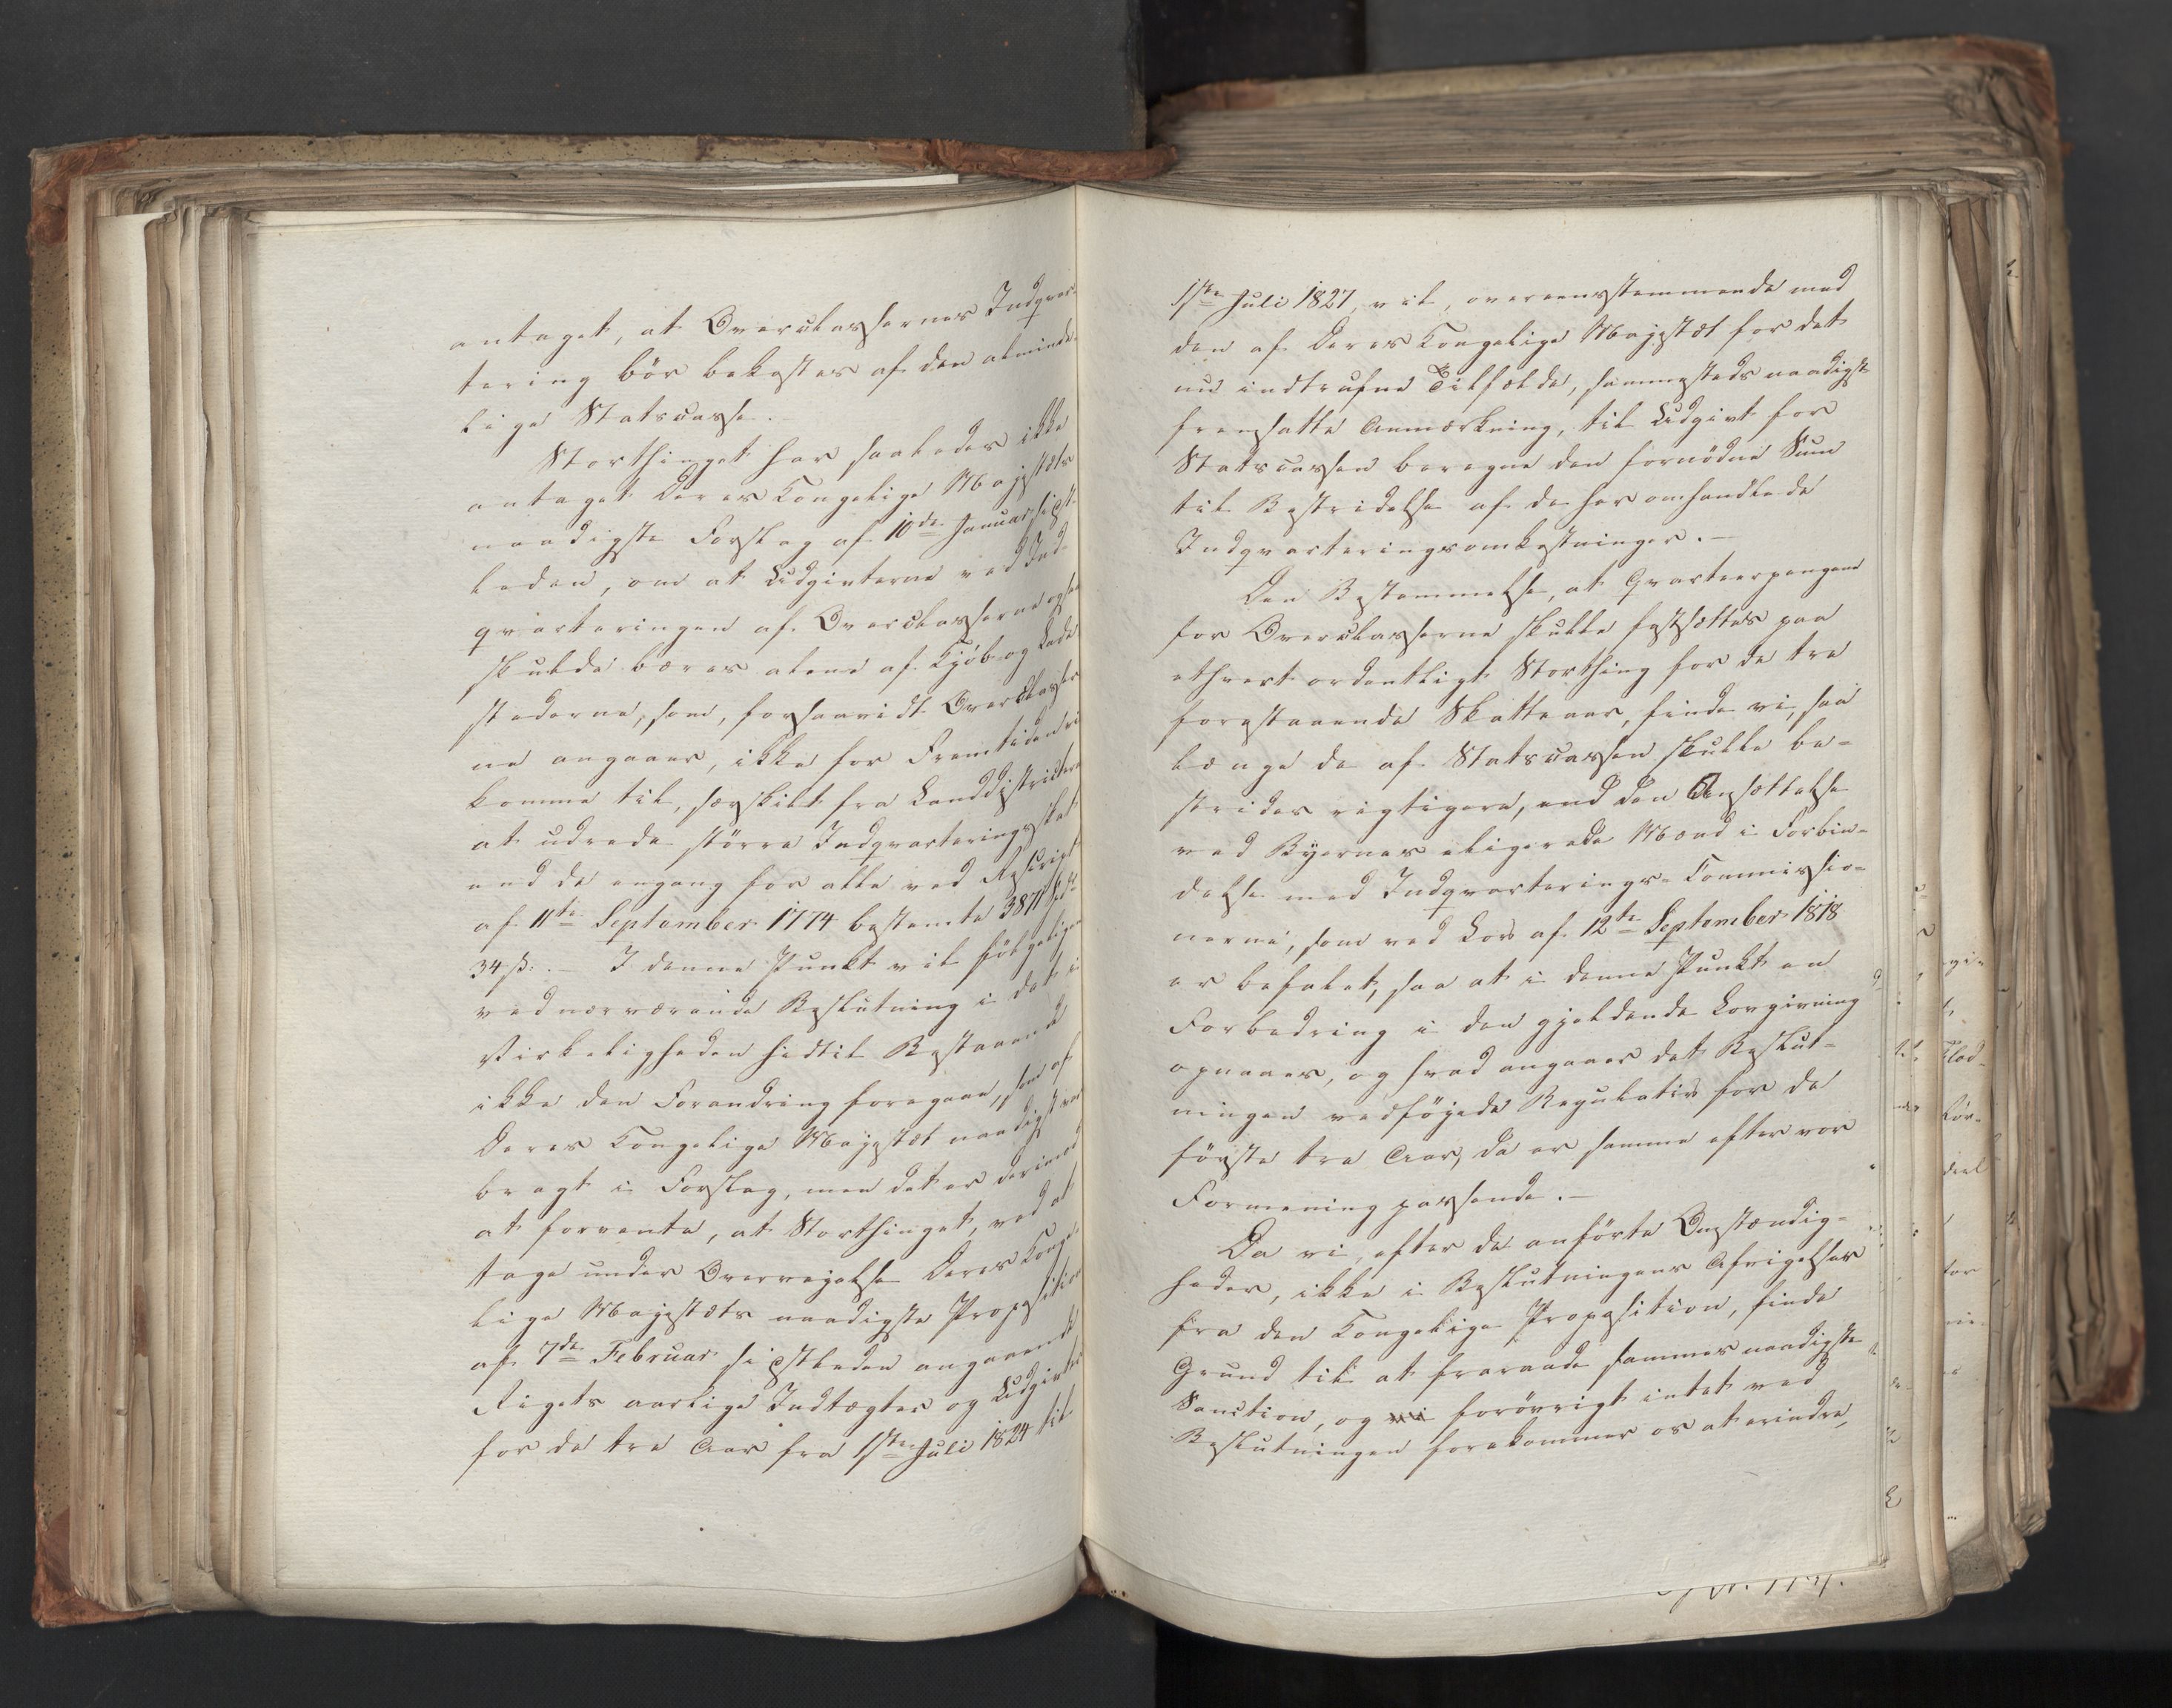 antaget, at Overclassernes Indqvar-
tering bör bekostes af den alminde-
lige Statscasse.
Storthinget har saaledes ikke
antaget Deres Kongelige Majestæts
naadigste Forslag af 10de Januar sidst-
leden, om at Udgivterne ved Ind-
qvarteringen af Overclasserne ogsaa
skulde bæres alene af Kjöb- og Lade-
stederne, som, forsaavidt Overclasser-
ne angaaer, ikke for Fremtiden vil
komme til, særskilt fra Landdistricterne
at udrede större Indqvarteringsskat
end de engang for alle ved Rescript
af 11te September 1774 bestemte 3871 Spd.
34 ß. - I denne Punkt vil fölgeligen
ved nærværende Beslutning i det i
Virkeligheden hidtil Bestaaende
ikke den Forandring foregaae, som af
Deres Kongelige Majestæt naadigst var
bragt i Forslag, men det er derimod
at forvente, at Storthinget, ved at
tage under Overvejelse Deres Konge-
lige Majestæts naadigste Proposition
af 7de Februar sidstleden angaaende
Rigets aarlige Indtægter og Udgivter
for de tre Aar fra 1ste Juli 1824 til
1ste Juli 1827, vil, overeensstemmende med
den af Deres Kongelige Majestæt for det
nu indtrufne Tilfælde, sammesteds naadigst
fremsatte Anmærkning, til Udgivt for
Statscassen beregne den fornödne Sum
til Bestridelse af de her omhandlede
Indqvarteringsomkostninger. -
Den Bestemmelse, at Qvarteerpengene
for Overclasserne skulle fastsættes paa
ethvert ordentligt Storthing for de tre
forestaaende Skatteaar, finde vi, saa
længe de af Statscassen skulle be-
strides rigtigere, end den Ansættelse
ved Byernes eligerede Mænd i Forbin-
delse med Indqvarterings-Commissio-
nerne, som ved Lov af 12te September 1818
er befalet, saa at i denne Punkt en
Forbedring i den gjældende Lovgivning
opnaaes, og hvad angaaer det Beslut-
ningen vedföjede Regulativ for de
förste tre Aar, da er samme efter vor
Formening passende. -
Da vi, efter de anförte Omstændig-
heder, ikke i Beslutningens Afvigelser
fra den Kongelige Proposition, finde
Grund til at fraraade sammes naadigste
Sanction, og vi forövrigt intet ved
Beslutningen forekommer os at erindre,